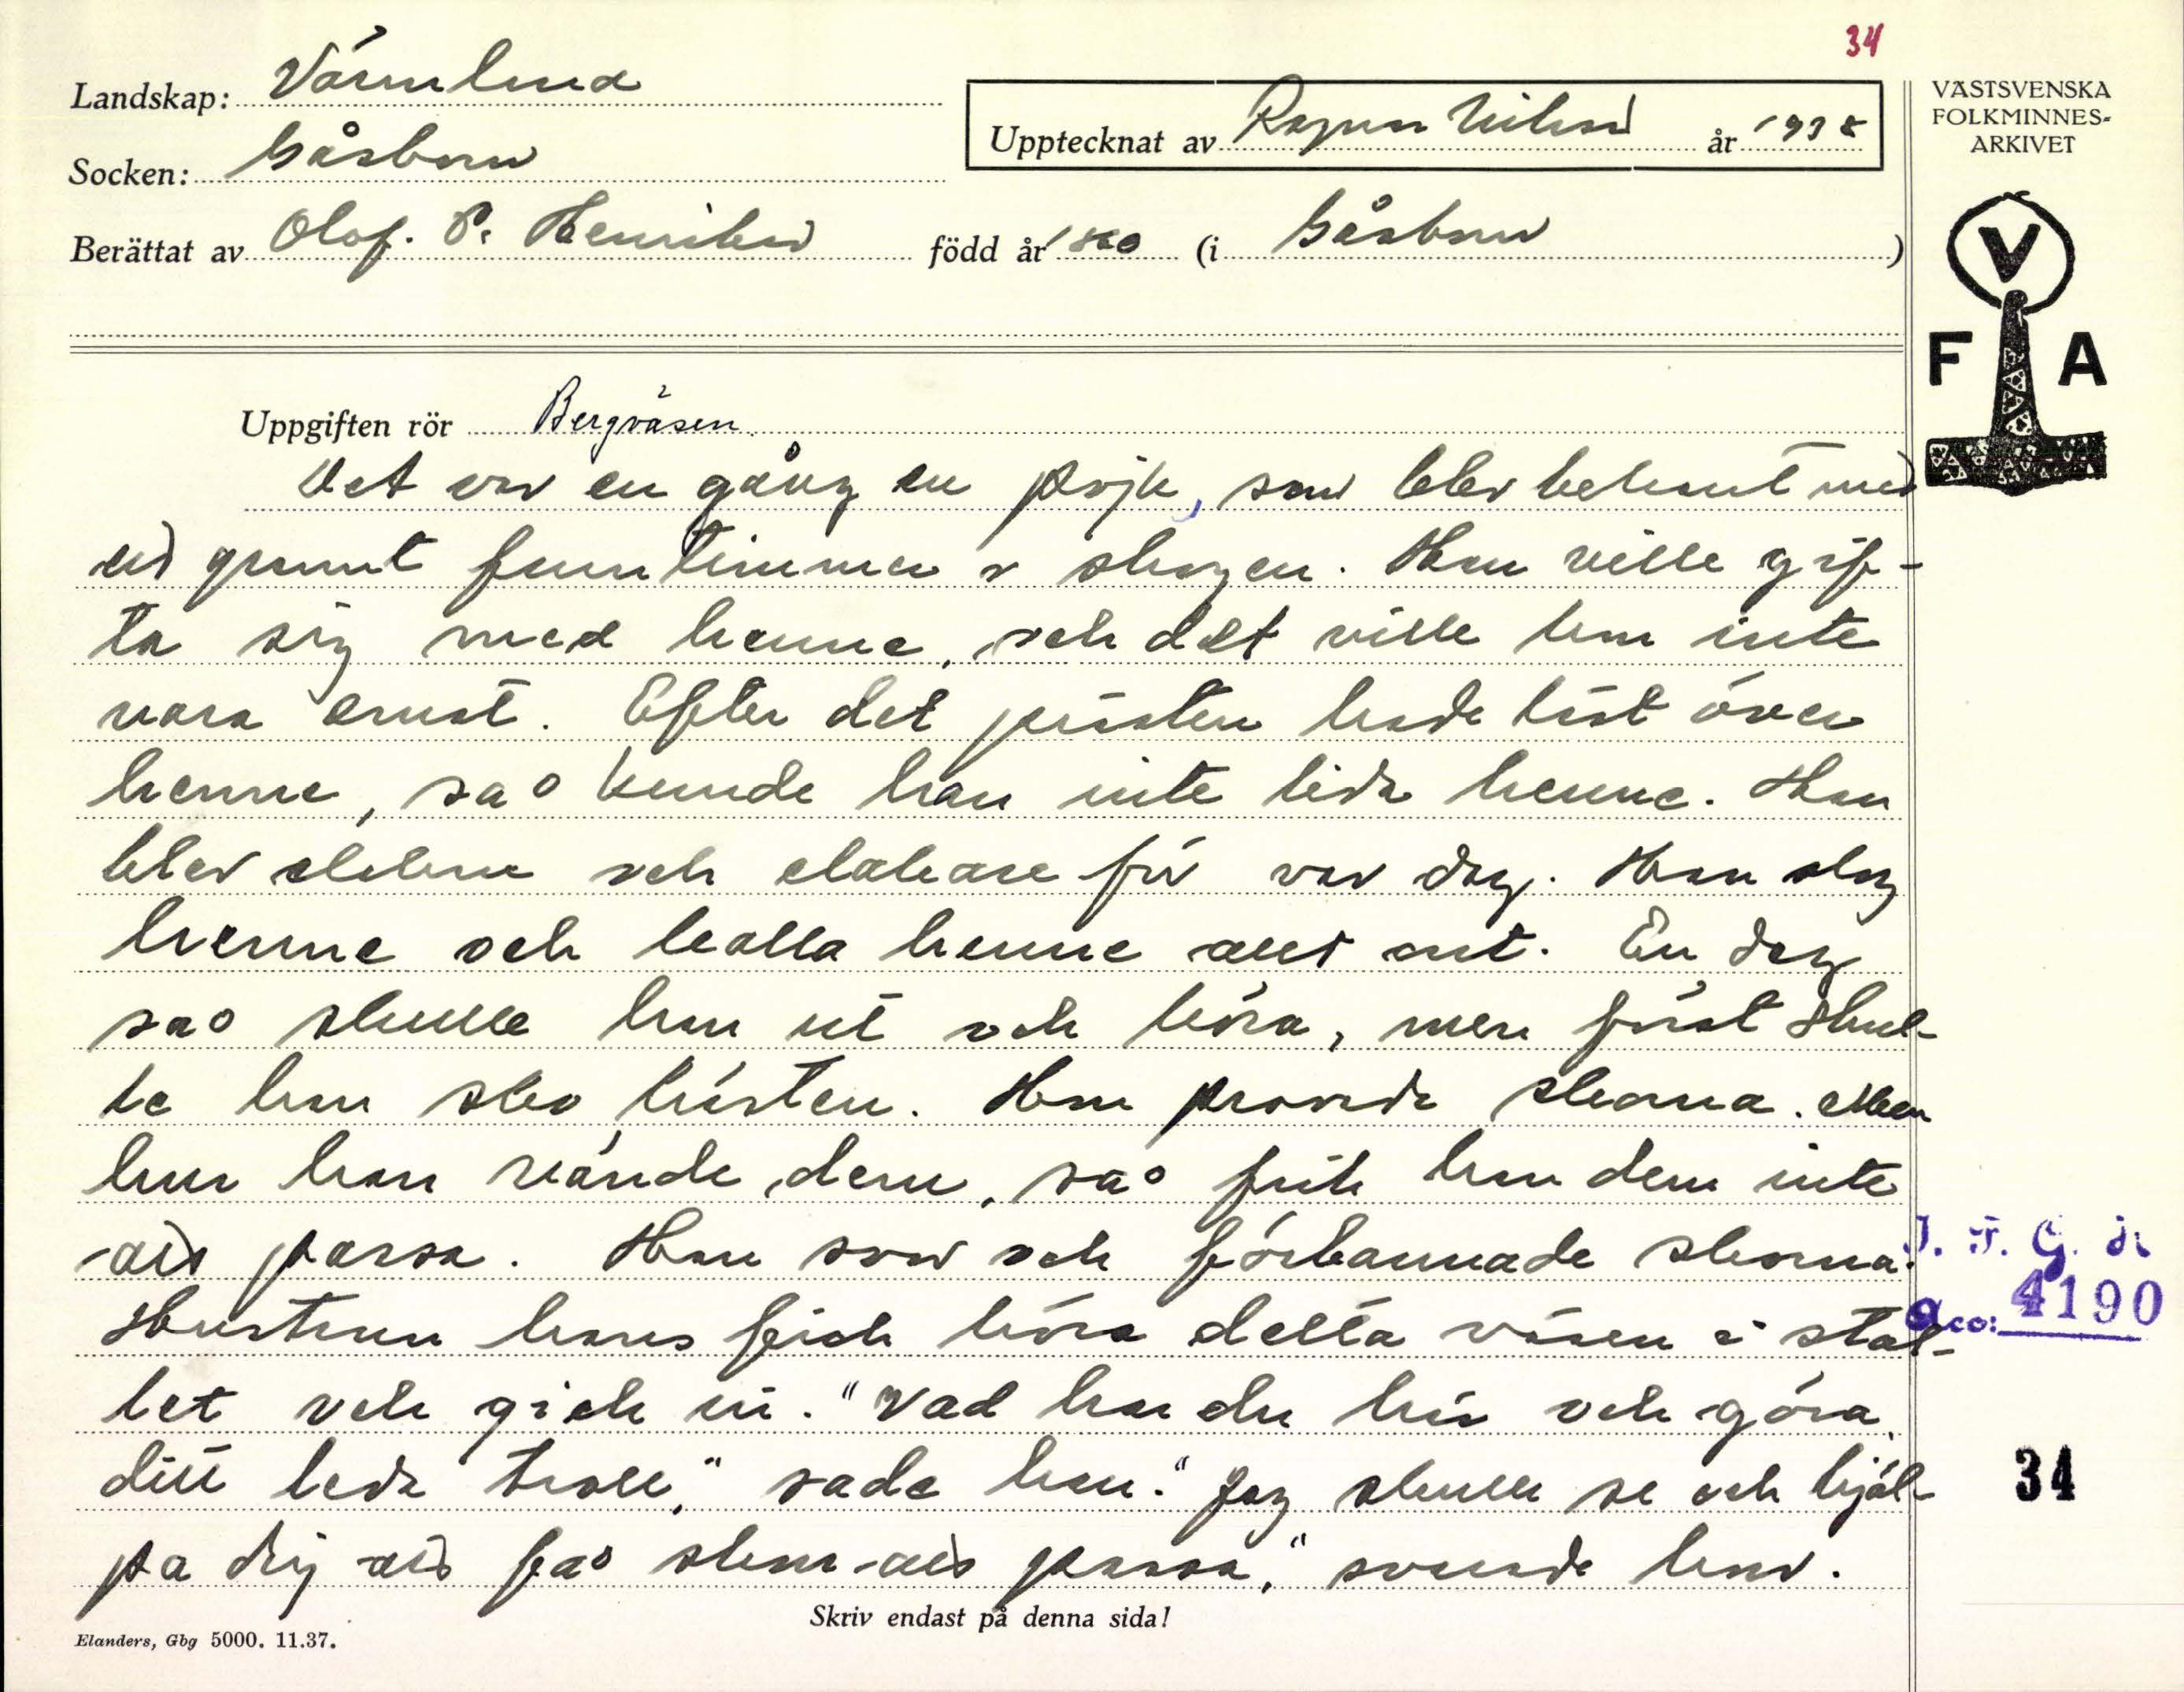 34
Landskap: Värmland
VÄSTSVENSKA
FOLKMINNES-
ARKIVET
Upptecknat av Ragnar Nilsson år 1938
Socken: Gåsborn
Berättat av Olof. P. Henriksson född år 1860 (i Gåsborn)
V
F A
Uppgiften rör Bergväsen.
Det var en gång en pojk, som blev bekant med
ett grannt fruntimmer i skogen. Han ville gif-
ta sig med henne, och det ville hon inte
vara emot. Efter det prästen hade läst över
henne, så kunde han inte lida henne. Han
blev elakare och elakare för var dag. Han slog
henne och kalla henne allt ont. En dag
så skulle han ut och köra, men först skul-
le han sko hästen. Han provade skorna. Men
hur han vände dem, så fick han dem inte
att passa. Han svor och förbannade skorna.
Hustrun hans fick höra detta väsen i stal-
let och gick in. "Vad har du här och göra,
ditt leda troll," sade han. "Jag skulle se och hjäl-
pa dig att få skon att passa," svarade hon.
I. F. G. nr
Acc: 4190
34
Skriv endast på denna sida!
Elanders, Gbg 5000. 11.37.